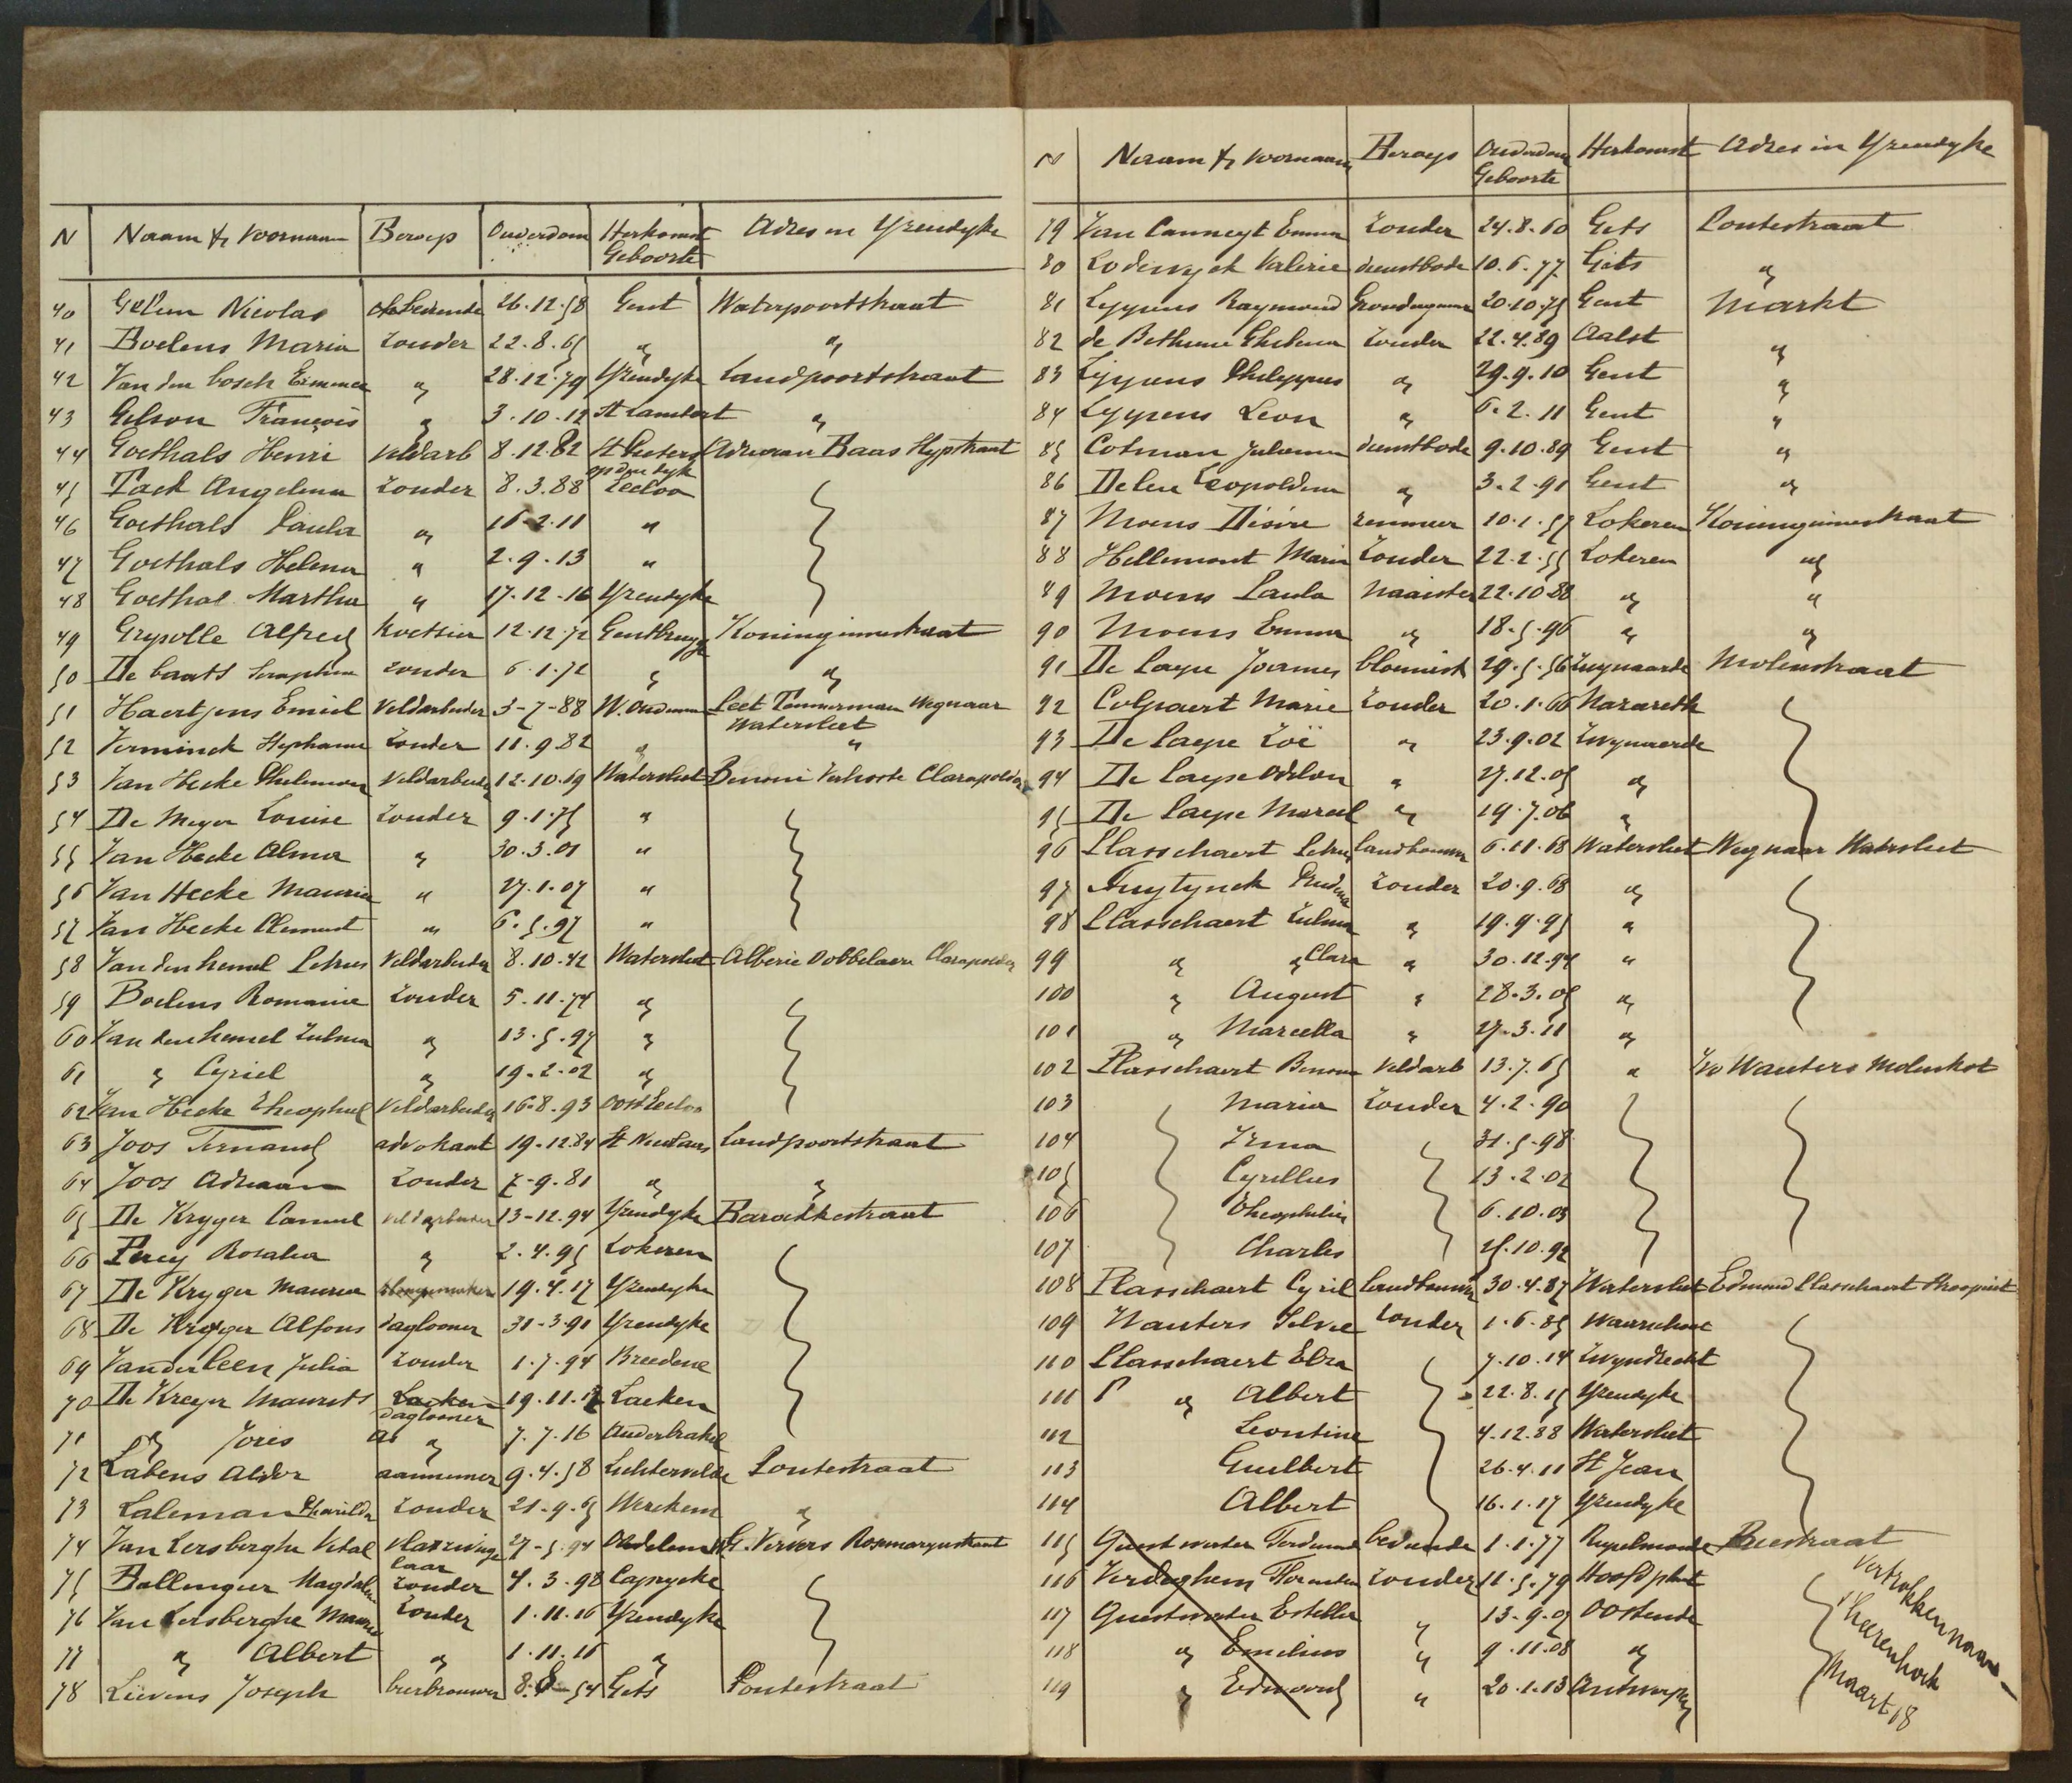 N Naam & Voornaam Beroep Ouderdom Herkomst Adres in Yzendyke
Geboorte
40 Nicolas 26.12.58 Gent Waterpoortstraat
41 Boelens Maria Zonder 22.8.65 " "
42 Van den bosch Emma " 28.12.79 Yzendyke Landpoortstraat
43 Gelson François " 3.10.12 St Lambert "
44 Goethals Henri Veldarb 8.12.82 St Pieters Adriaan Baas
op den dyk
45 Tack Angelina Zonder 8.3.88 Eecloo
46 Goethals Paula " 2.11 "
47 Goethals Helena " 2.9.13 "
48 Goethal Martha " 17.12.16 Yzendyke
49 Grypolle Alfred Koetsier 12.12.72 Gentbrugge Koninginnestraat
50 De baats Seraphine zonder 6.1.72 " "
51 Haertjens Emiel Veldarbeider 3-7-88 W. Oudeman Peet Timmerman Weg naar
Watervliet
52 Verminck Stephanie Zonder 11.9.82 " "
53 Van Hecke Philemon Veldarbeider 12.10.69 Watervliet Benoni Verhoste Clarapolder
54 De Meyer Louise Zonder 9.1.75 "
55 Van Hecke Alma " 30.3.01 "
56 Van Hecke Maurice " 27.1.07 "
57 Van Hecke Clement " 6.5.97 "
58 Van den hemel Petrus Veldarbeider 8.10.42 Watervliet Alberic Dobbelaere Clarapolder
59 Boelens Romanie Zonder 5.11.74 "
60 Van den hemel Zulma " 13.5.97 "
61 " Cyriel " 19.2.02 "
62 Van Hecke Theophiel Veldarbeider 16.8.93 Oost Eecloo
63 Joos Fernand advokaat 19.12.84 St Nicolaas Landpoortstraat
64 Joos Adriaan Zonder 7-9.81 " "
65 De Kryger Camiel Veldarbeider 13-12.94 Yzendyke Barakkestraat
66 Percy Rosalia " 2.4.95 Lokeren
67 De Kryger Maurice 19.4.17 Yzendyke
68 De Kryger Alfons daglooner 31-3.91 Yzendyke
69 Vanderleen Julia Zonder 1.7.94 Breedene
70 De Kreyger Maurits Laeken 19.11.12 Laeken
daglooner
71 " Joris " 7.7.16 Anderbrakel
72 Labens Aldor aannemer 9.4.58 Lichtervelde Pontestraat
73 Laleman Pharilda Zonder 21-9.65 Werckem "
74 Van Lersberghe Vital vlaszwinge 27-5.94 G. Ververs Rosmarynstraat
laar
75 Ballenguer Magdalena Zonder 4.3.98 Caprycke
76 Van Lersberghe Maurice Zonder 1.11.16 Yzendyke
77 " Albert " 1.11.16 "
78 Lievens Joseph bierbrouwer 8.8-54 Gets Pontestraat
N Naam & Voornaam Beroep Ouderdom Herkomst Adres in Yzendyke
Geboorte
79 Van Canneyt Emma Zonder 24.8.60 Gets Pontestraat
80 Lodewyck Valerie dienstbode 10.6.77 Gits "
81 Lyppens Raymond Grondeigenaar 20.10.75 Gent Markt
82 de Bethune Ghelena Zonder 22.4.89 Aalst "
83 Lyppens Philippus " 29.9.10 Gent "
84 Lyppens Leon " 6.2.11 Gent "
85 Cotman Juliana dienstbode 9.10.89 Gent "
86 Deleu Leopoldina " 3.2.91 Gent "
87 Moens Désiré 10.1.57 Lokeren Koninginnestraat
88 Hellemont Maria Zonder 22.2.55 Lokeren "
89 Moens Paula Naaister 22.10.88 " "
90 Moens Emma " 18.5.96 " "
91 De Paepe Joannes bloemist 29.5.56 Zwynaarde Molenstraat
92 Colpaert Marie Zonder 20.1.66 Nazareth
93 De Paepe Zoë " 23.9.02 Zwynaerde
94 De Paepe Odilon " 27.12.05 "
95 De Paepe Marcel " 19.7.06 "
96 Plasschaert Petrus Landbouwer 6.11.68 Watervliet Weg naar Watervliet
97 Zonder 20.9.68 "
98 Plasschaert Zulma " 19.9.95 "
99 " " Clara " 30.12.94 "
100 " August " 28.3.05 "
101 " Marcella " 27.3.11 "
102 Plasschaert Benoni Veldarb 13.7.65 " Wauters Molenkot
103 Maria Zonder 4.2.90
104 Irma 31.5.98
105 Cyrillus 13.2.02
106 Theophilia 6.10.03
107 Charles 25.10.92
108 Plasschaert Cyril Landbouwer 30.4.87 Watervliet Edmond Plasschaert
109 Wauters Silvie Zonder 1.6.85 Waerschoot
110 Plasschaert Elza 7.10.14 Zwyndrecht
111 " Albert 22.8.15 Yzendyke
112 Leontine 4.12.88 Watervliet
113 Guilbert 26.4.11 St Jean
114 Albert 16.1.17 Yzendyke
115 Ferdinand bediende 1.1.77 Rupelmonde Beestraat
116 Verdeghem Zonder 11.5.79 Hoofdplaat
117 Estella " 13-9.07 Oostende
118 " Emilius " 9.11.08 "
119 " Edmond " 20.1.13 Antwerpen
Vertrokken naar
's heerenhoek
Maart 18